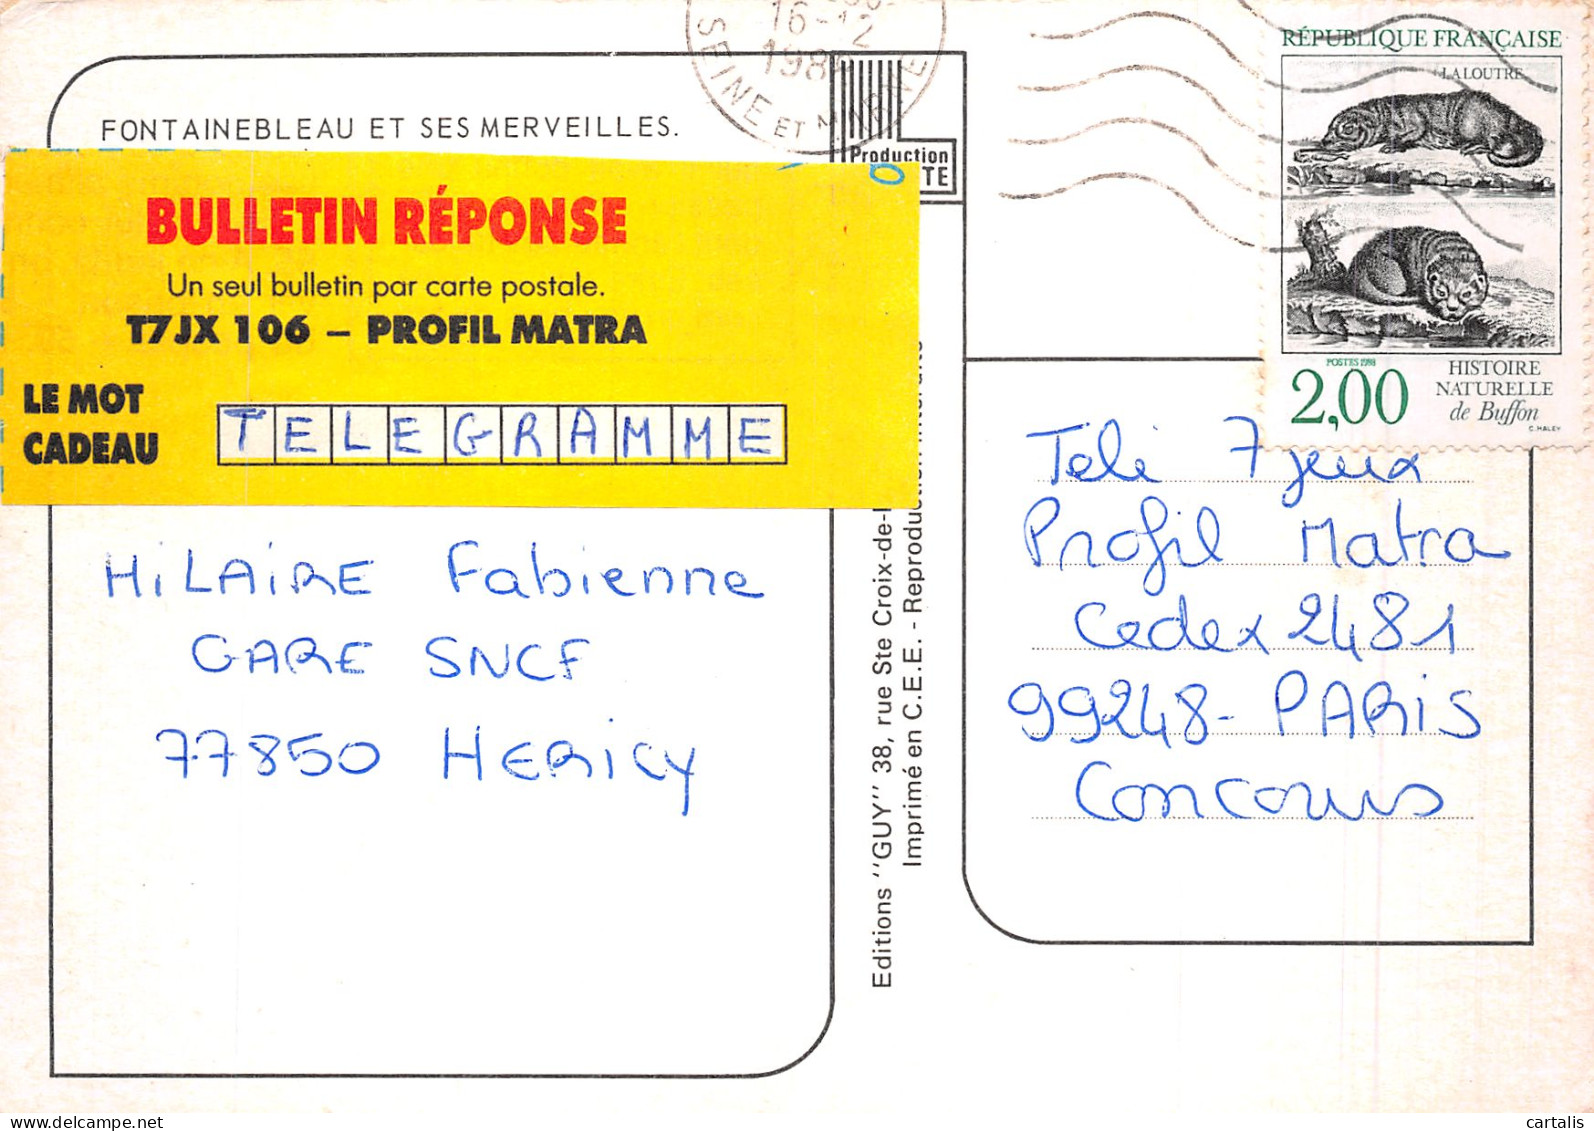 16-12
198
SEINE ET MARNE
FONTAINEBLEAU ET SES MERVEILLES.
Production
TE
RÉPUBLIQUE FRANÇAISE
LA LOUTRE
POSTES 1988
2,00
HISTOIRE
NATURELLE
de Buffon
C.HALEY
BULLETIN RÉPONSE
Un seul bulletin par carte postale.
T7JX 106 – PROFIL MATRA
LE MOT
CADEAU
TELEGRAMME
HiLAiRE Fabienne
GARE SNCF
77850 HERICY
Editions "GUY" 38, rue Ste Croix-de-l
Imprimé en C.E.E. - Reproduction
Télé 7 jeux
Profil Matra
Cedex 2481
99248- PARiS
Concours
cartalis
www.delcampe.net